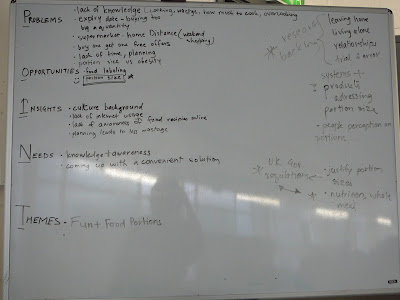 PROBLEMS • lack of knowledge (cooking, wastage, how much to cook, overcooking
• expiry date - buying too
big quantity
• supermarket - home Distance (weekend
shopping)
• buy one get one free offers
• lack of time, planning
portion size vs obesity
OPPORTUNITIES • food labeling
portion size *
INSIGHTS • culture background
• lack of internet usage
• lack of awareness of food recipies online
• planning leads to no wastage
NEEDS • knowledge + awareness
• coming up with a convenient solution
THEMES • Fun + Food Portions
•
* research
backing
leaving home
living alone
relationships
trial & error
systems +
products
adressing
portion size
• people perception on
portions
* U.K. Gov
regulations
• justify portion
sizes
* nutrition, whole
meal